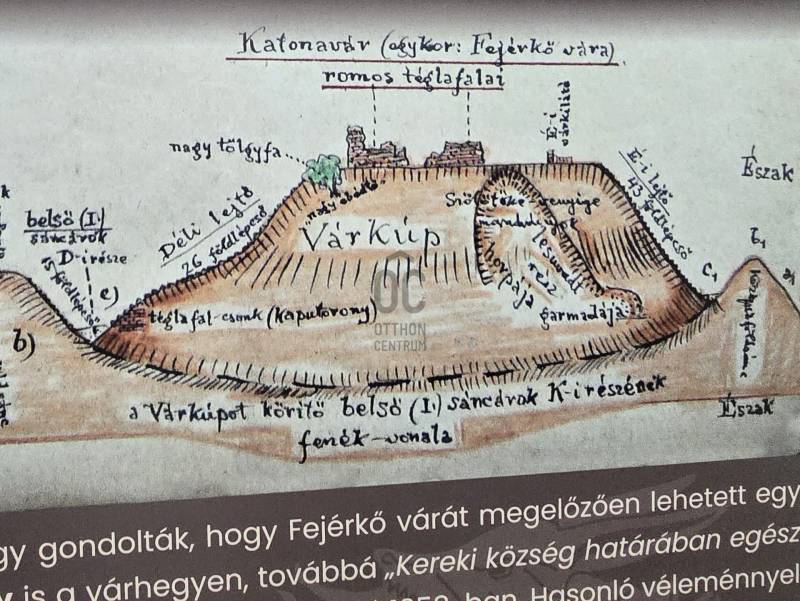 Katonavár (egykor: Fejérkő vára)
romos téglafalai
É-i
várkilátó
nagy tölgyfa
É-i lejtő
43 földlépcső
Észak
belső (I.)
sáncárok
D-i része
15 földlépcsők
Déli lejtő
26 földlépcső
c)
Várkúp
horpája
garmadája
téglafal-csonk (kaputorony)
C1
b1
b)
OC
OTTHON
CENTRUM
a Várkúpot körítő belső (I.) sáncárok K-i részének
fenék-vonala
Észak
gy gondolták, hogy Fejérkő várát megelőzően lehetett egy
is a várhegyen, továbbá „Kereki község határában egész
ban. Hasonló véleménnyel